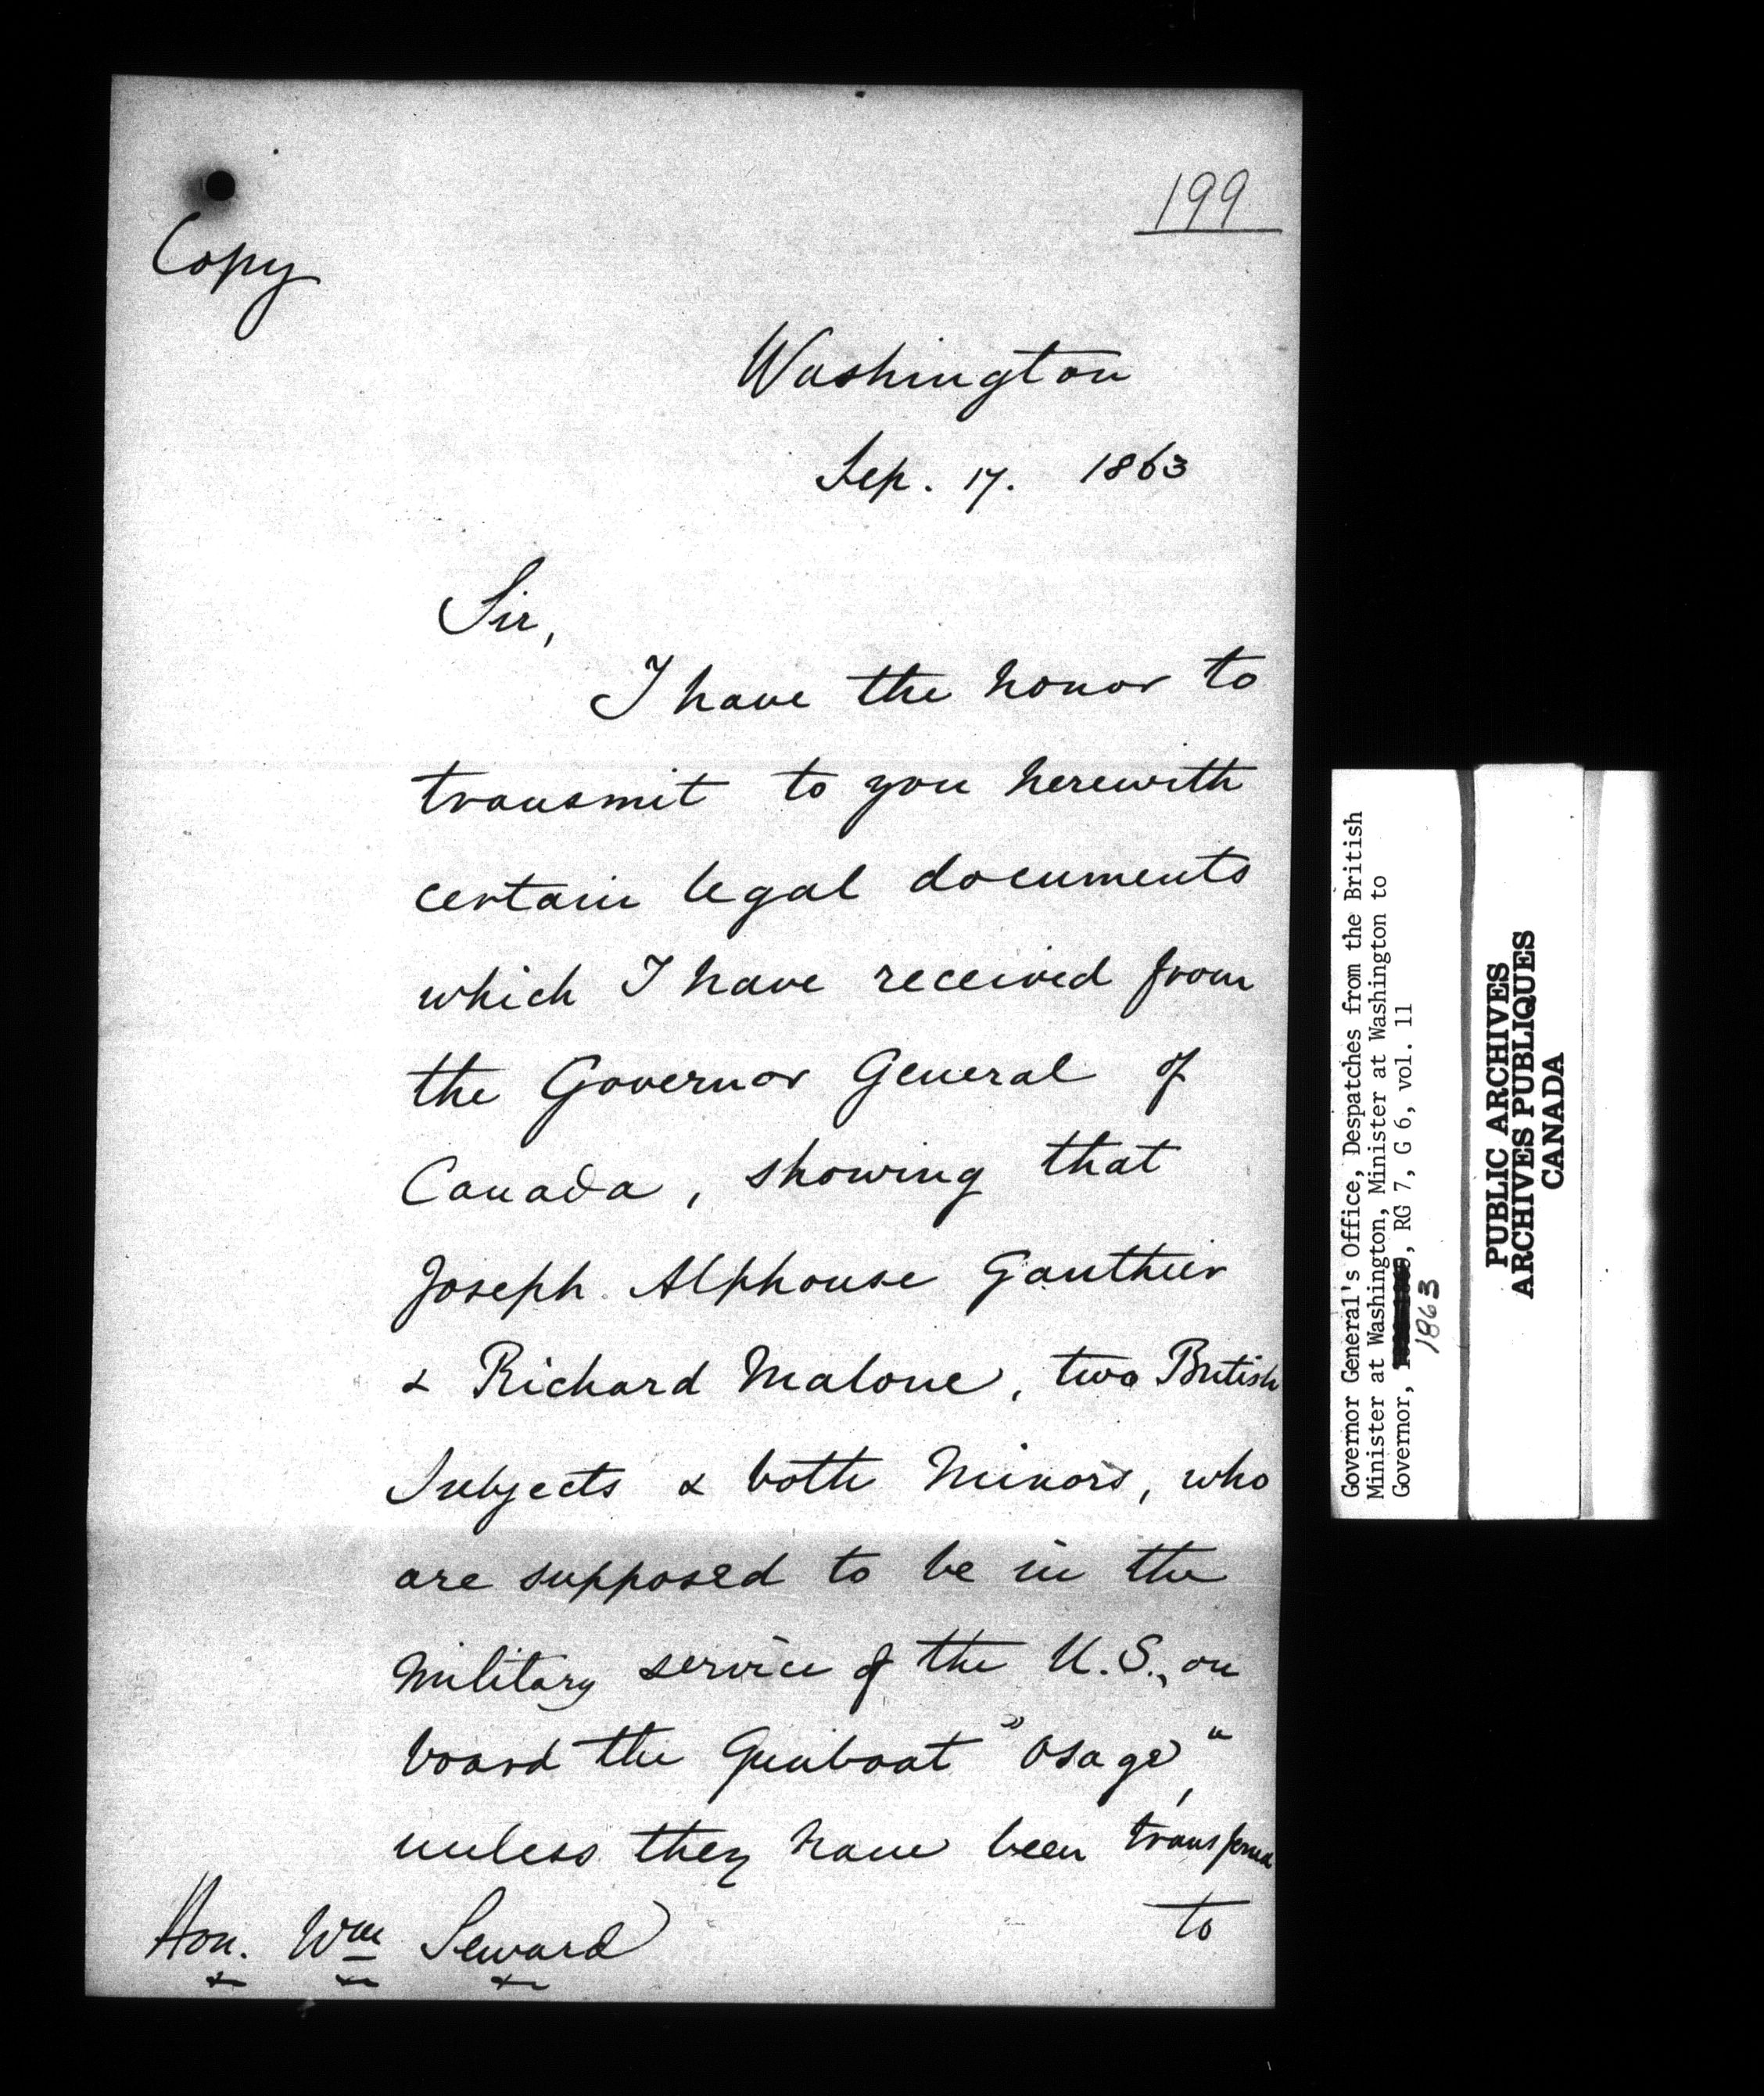 199
Copy
Washington
Sep. 17. 1863
Sir,
I have the honor to
transmit to you herewith
certain legal documents
which I have received from
the Governor General of
Canada, showing that
Joseph Alphonse Gauthier
& Richard Malone, two British
Subjects & both Minors, who
are supposed to be in the
Military service of the U.S., on
board the Gunboat "Osage",
unless they have been
to
Hon. Wm Seward
& & &
Governor General's Office, Despatches from the British
Minister at Washington, Minister at Washington to
Governor, RG 7, G 6, vol. 11
1863
PUBLIC ARCHIVES
ARCHIVES PUBLIQUES
CANADA